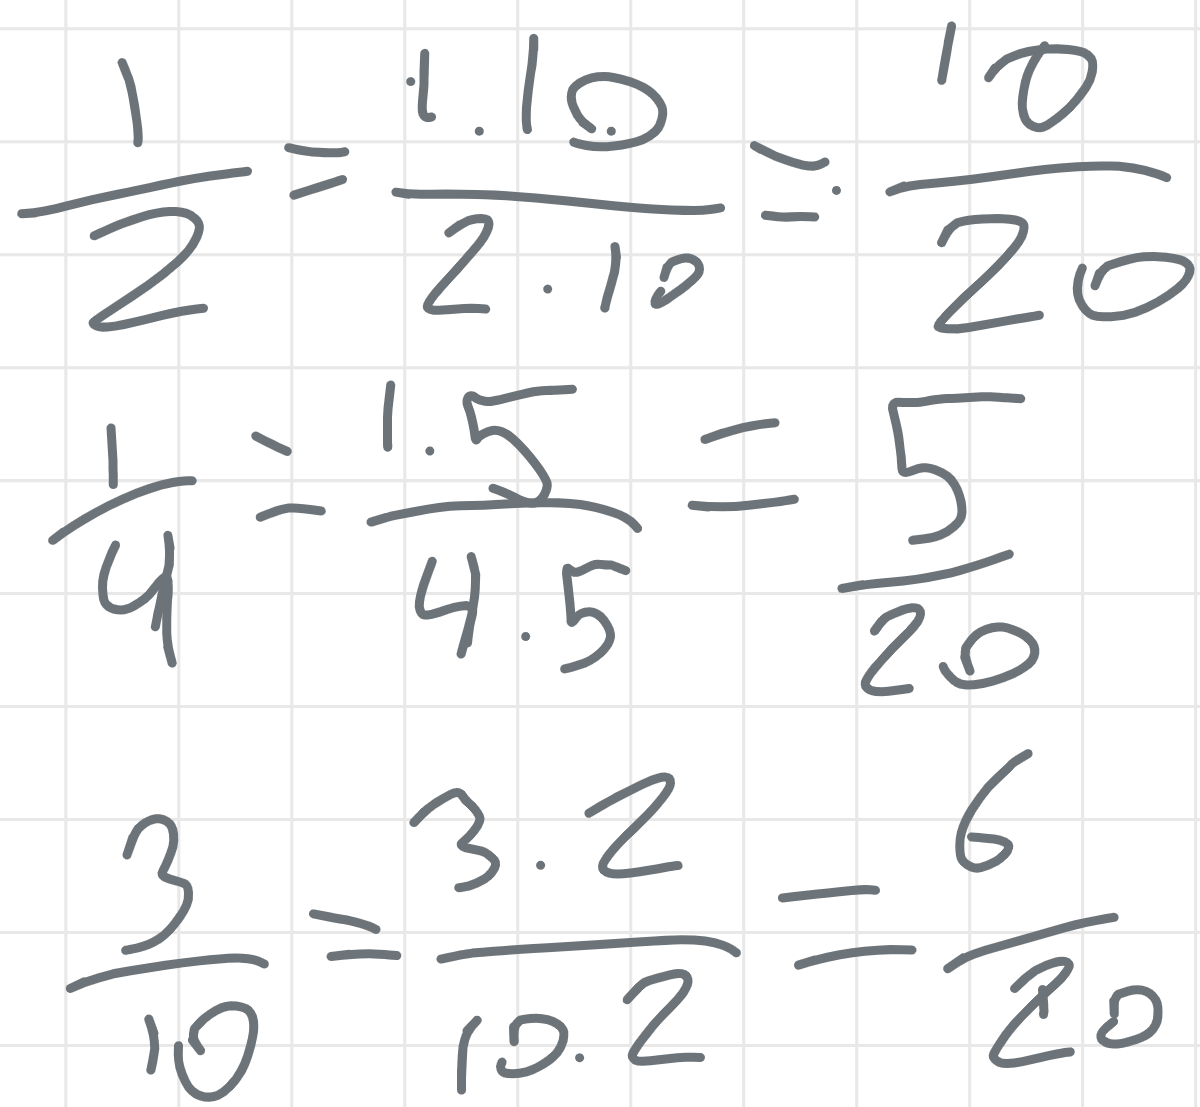 1/2 = 1·10/2·10 = 10/20
1/4 = 1·5/4·5 = 5/20
3/10 = 3·2/10·2 = 6/20